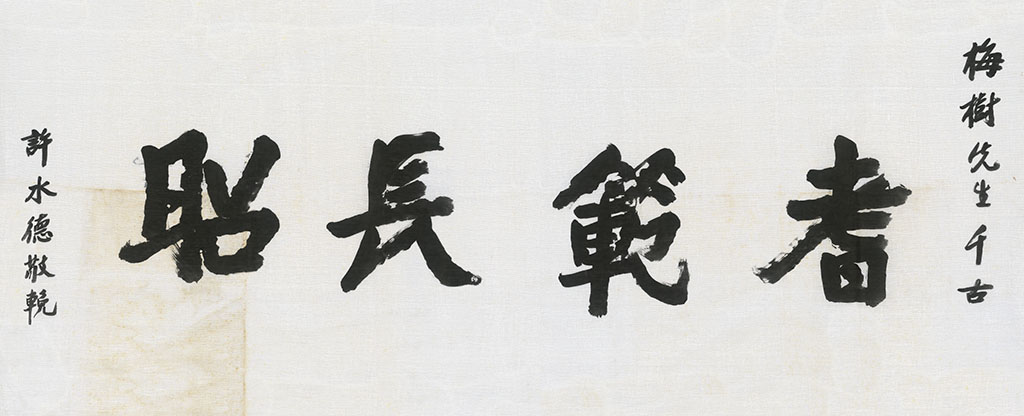 梅樹先生千古
耆範長昭
許水德敬輓